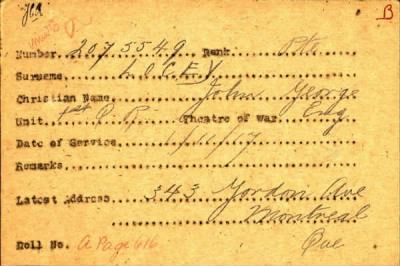 B
Number 2075549 Rank Pte
Surname LOCEY
Christian Name John George
Unit 1st Q. R. Theatre of War Eng
Date of Service 1/11/17
Remarks
Latest Address 343 Gordon Ave
Montreal
Roll No. A Page 616 Que